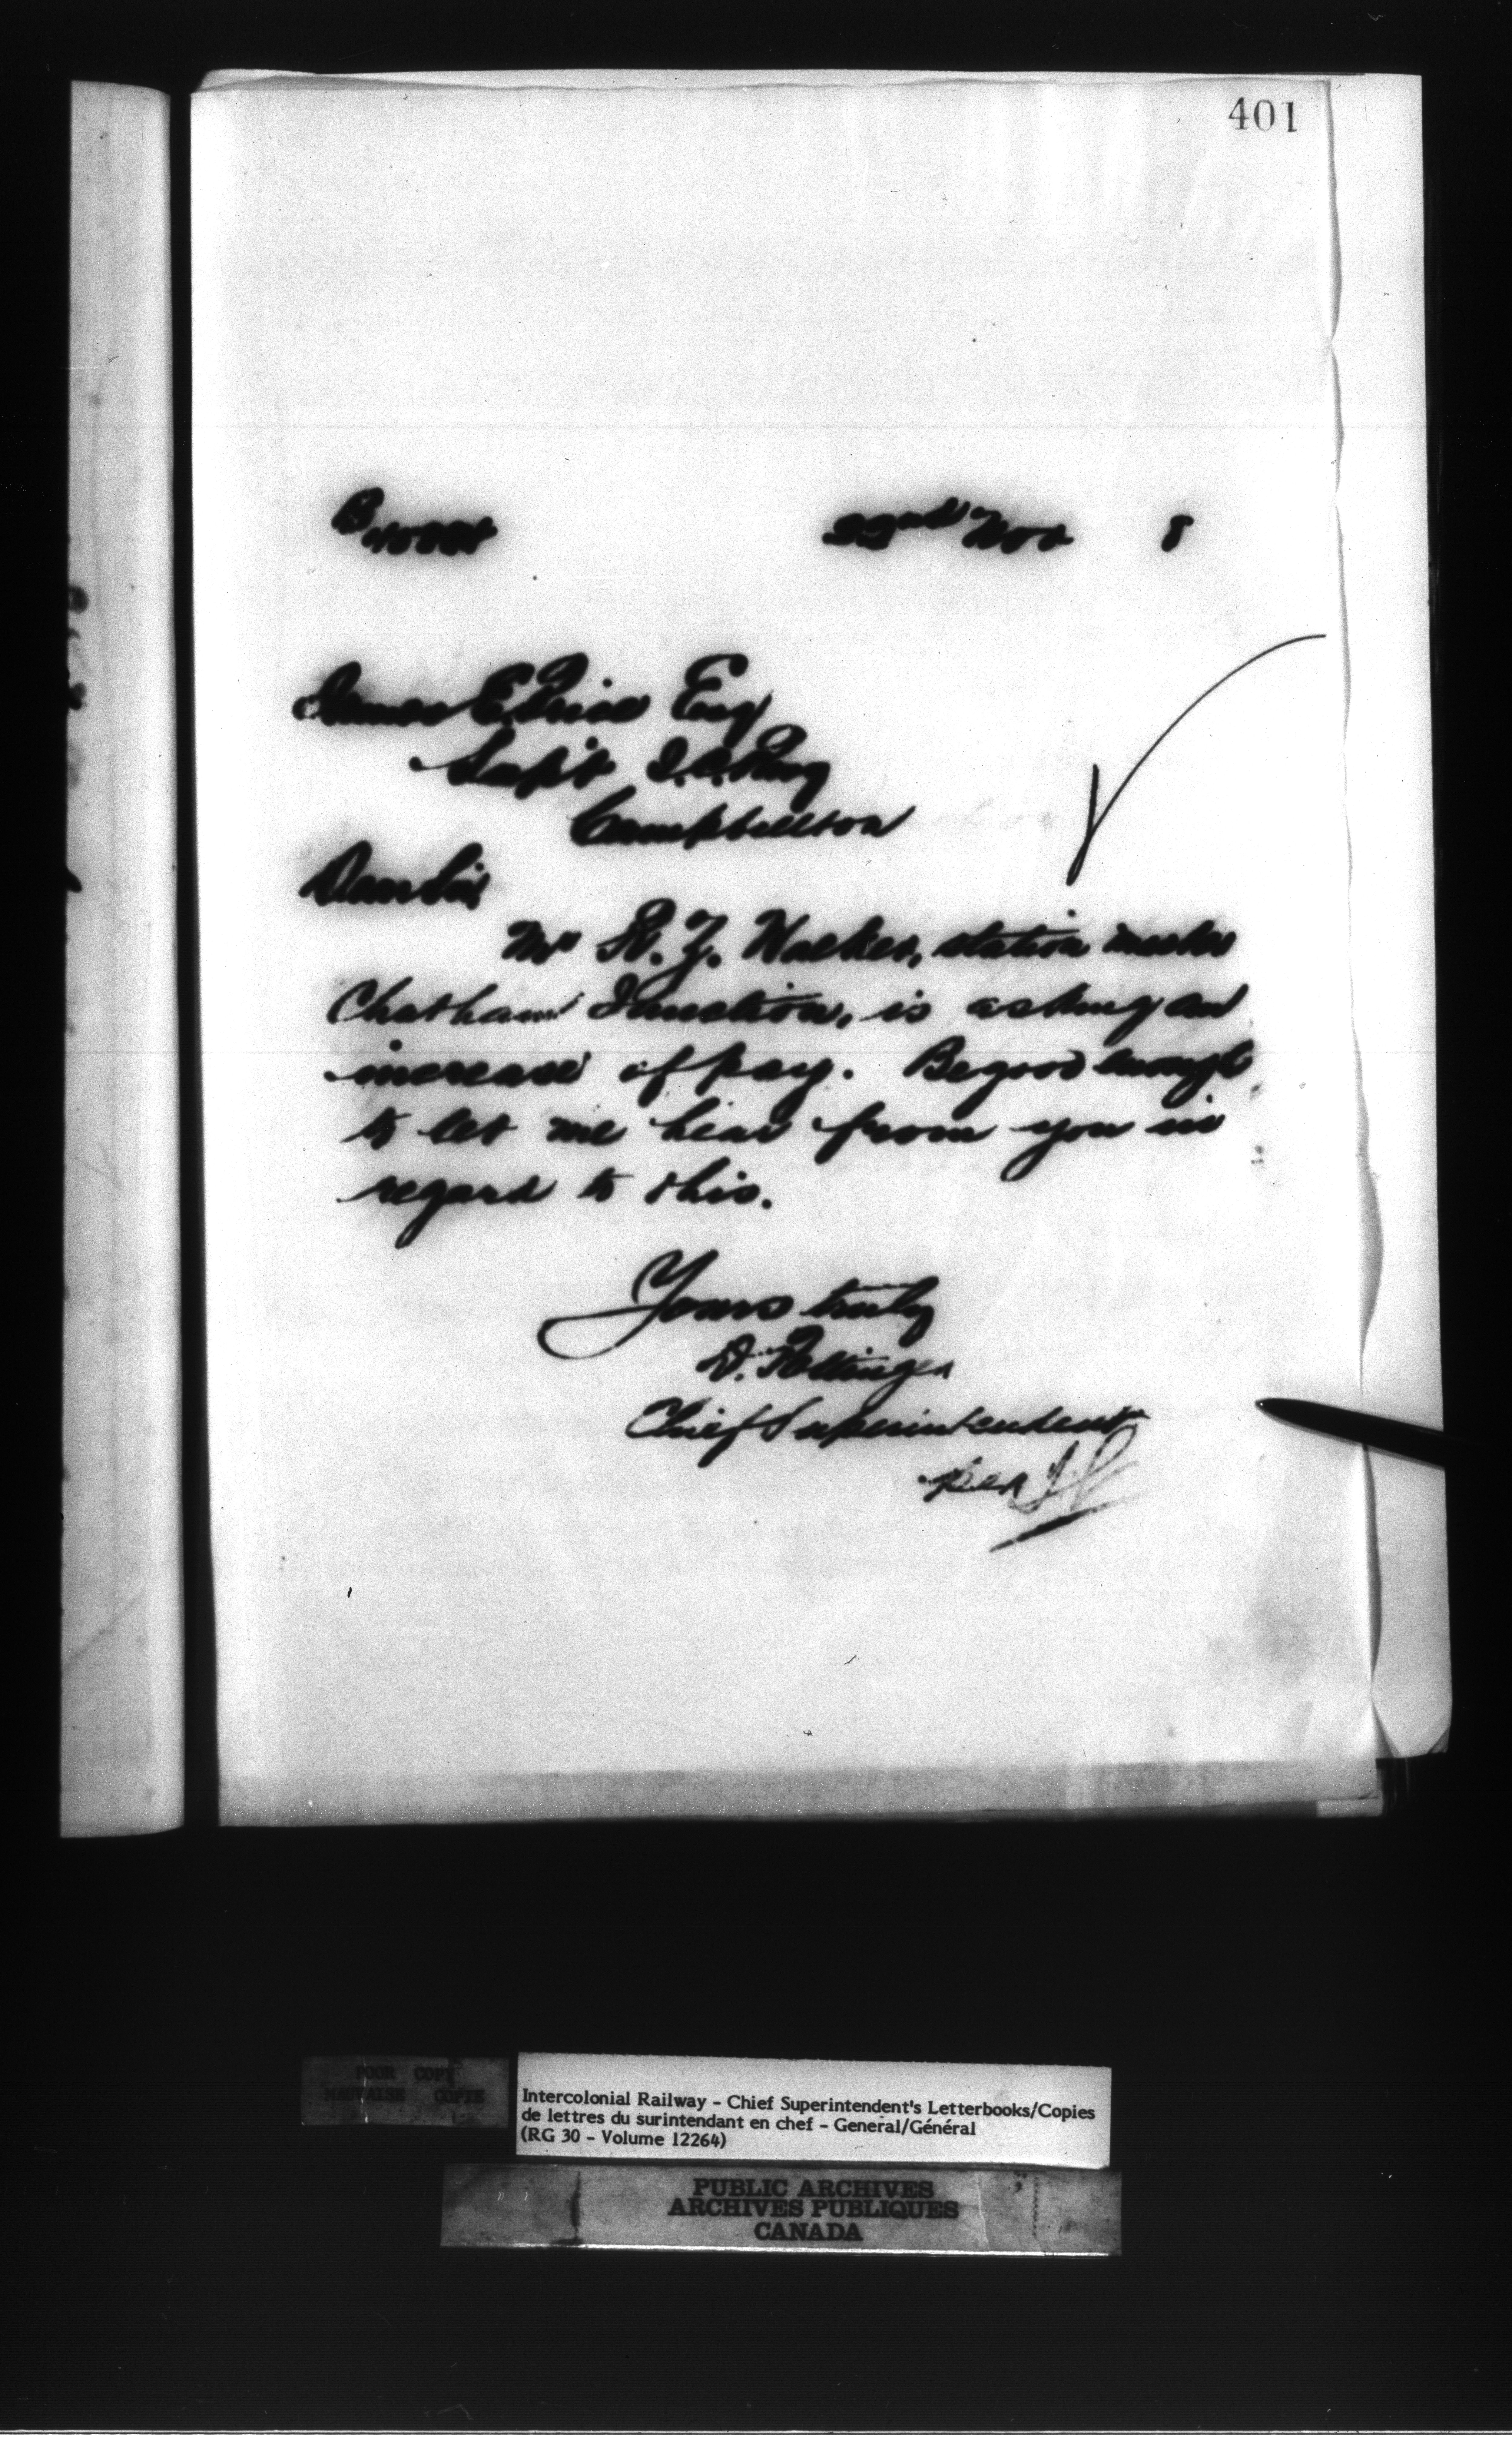 401
22nd Nov 8
James E. Price Esq
Supt I.C. Rwy
Campbellton
Dear Sir
Mr W. Z. Walker, station master
Chatham Junction, is asking an
increase of pay. Be good enough
to let me hear from you in
regard to this.
Yours truly
D. Pottinger
Chief Superintendent
per
POOR COPY
MAUVAISE COPIE
Intercolonial Railway - Chief Superintendent's Letterbooks/Copies
de lettres du surintendant en chef - General/Général
(RG 30 - Volume 12264)
PUBLIC ARCHIVES
ARCHIVES PUBLIQUES
CANADA